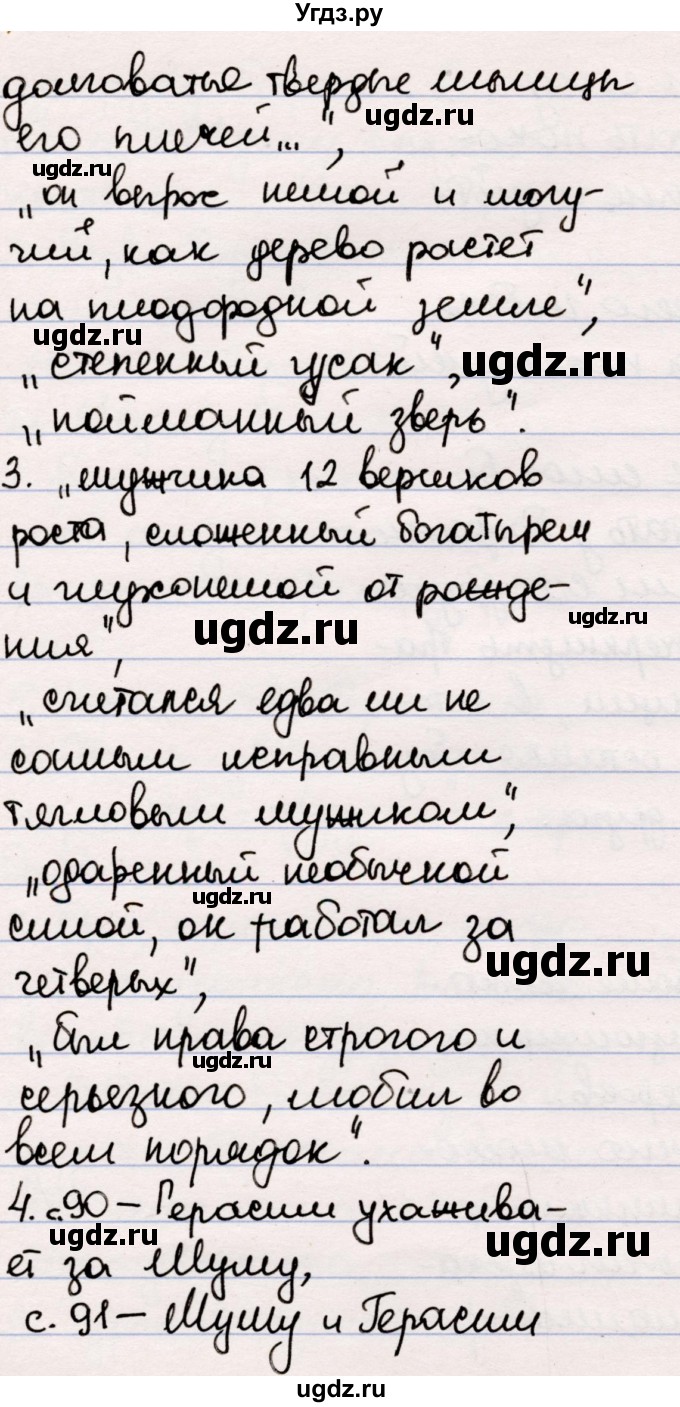 Угдз.ру
долговатые твердые мышцы
ugdz.ru
его плечей...",
ugdz.ru
„он вырос немой и могу-
чий, как дерево растет
на плодородной земле",
ugdz.ru
„степенный гусак",
ugdz.ru
„пойманный зверь".
3. „мужчина 12 вершков
роста, сложенный богатырем
и глухонемой от рожде-
ugdz.ru
ugdz.ru
ния",
„считался едва ли не
самым исправным
тягловым мужиком",
„одаренный необычной
ugdz.ru
силой, он работал за
ugdz.ru
четверых",
„был нрава строгого и
ugdz.ru
серьезного, любил во
всем порядок".
4. с.90 – Герасим ухажива-
ugdz.ru
ugdz.ru
ет за Муму,
с. 91 – Муму и Герасим
ugdz.ru